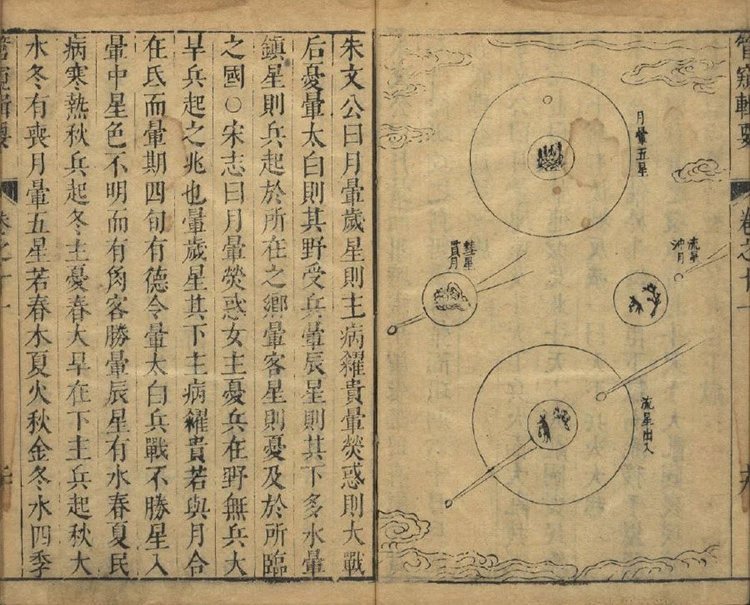 管窺輯要
卷之十一
月暈五星
流星
冲月
彗星
貫月
流星出入
朱文公曰月暈歲星則主病糴貴暈熒惑則大戰
后憂暈太白則其野受兵暈辰星則其下多水暈
鎮星則兵起於所在之鄉暈客星則憂及於所臨
之國○宋志曰月暈熒惑女主憂兵在野無兵大
旱兵起之兆也暈歲星其下主病糴貴若與月合
在氐而暈期四旬有德令暈太白兵戰不勝星入
暈中星色不明而有角客勝暈辰星有水春夏民
病寒熱秋兵起冬主憂春大旱在下主兵起秋大
水冬有喪月暈五星若春木夏火秋金冬水四季
管窺輯要
卷之十一